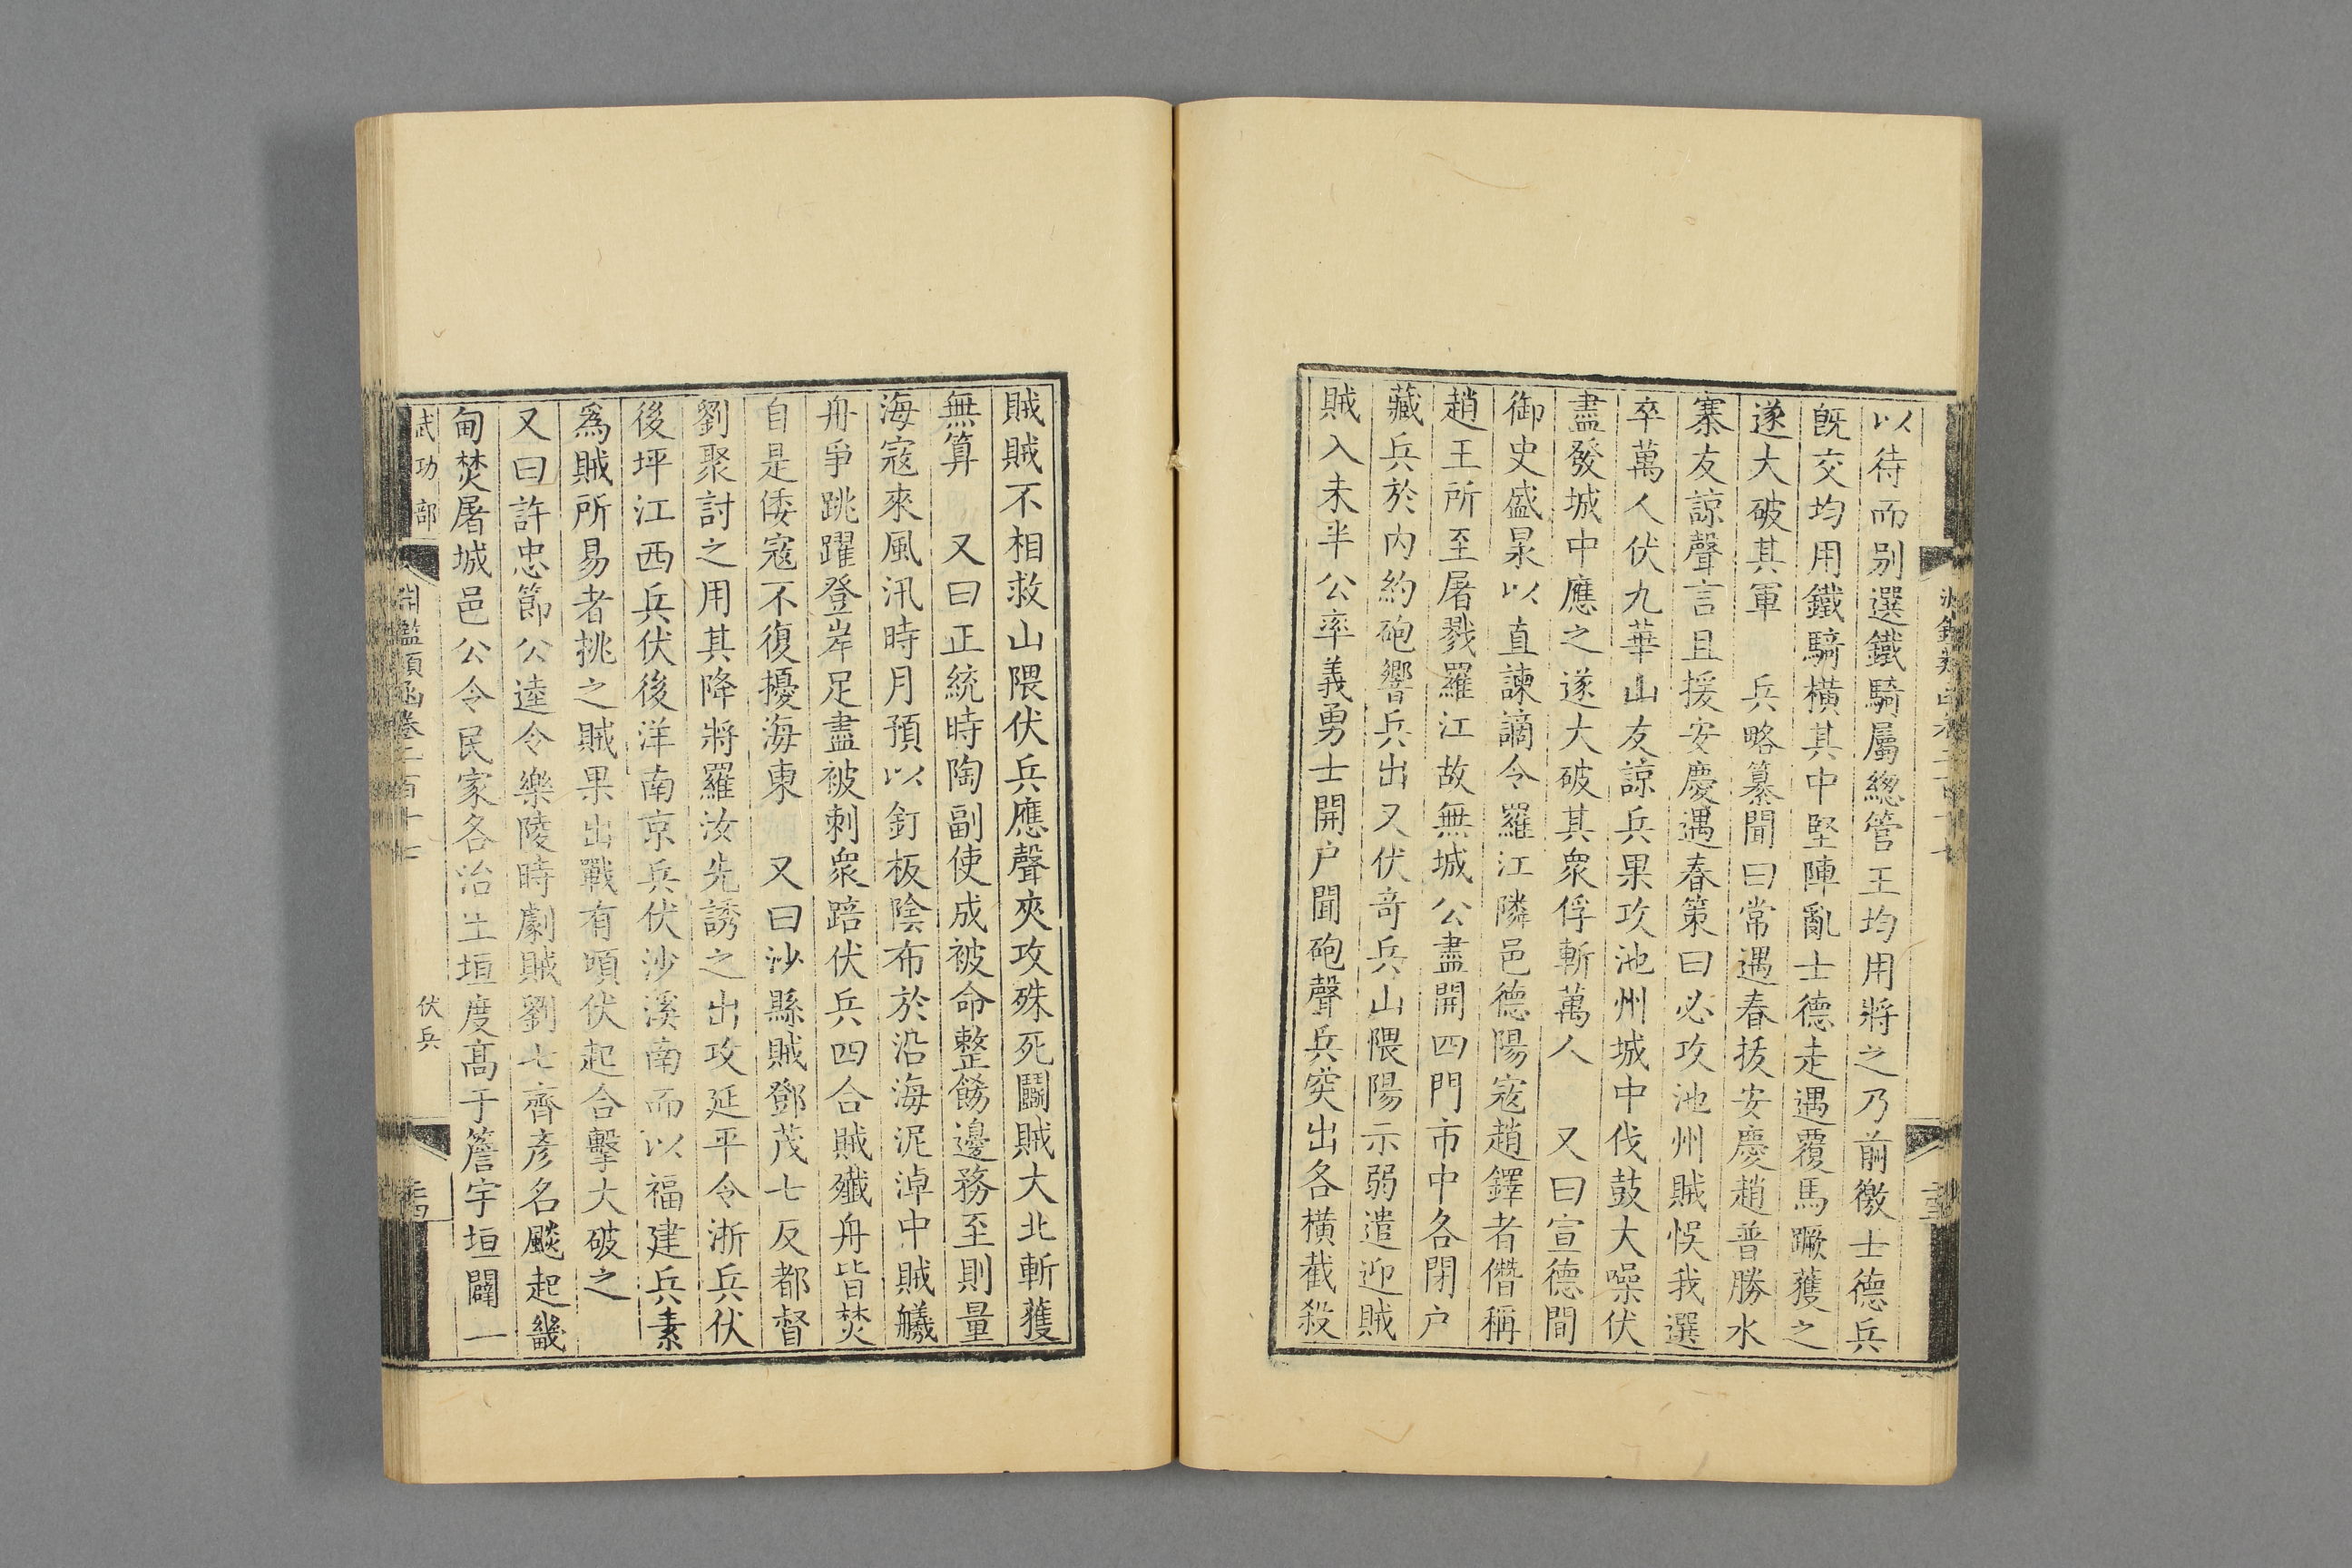 以待而别選鐵騎屬緫管王均用將之乃前徼士德兵
旣交均用鐵騎橫其中堅陣亂士德走遇覆馬蹶獲之
遂大破其軍　兵略纂聞曰常遇春拔安慶趙普勝水
寨友諒聲言且援安慶遇春策曰必攻池州賊悮我選
卒萬人伏九華山友諒兵果攻池州城中伐鼓大噪伏
盡發城中應之遂大破其衆俘斬萬人　又曰宣德間
御史盛㫤以直諫謫令羅江隣邑德陽寇趙鐸者僭稱
趙王所至屠戮羅江故無城公盡開四門市中各閉户
藏兵於内約砲響兵出又伏奇兵山隈陽示弱遣迎賊
賊入未半公率義勇士開户聞砲聲兵突出各橫截殺
賊賊不相救山隈伏兵應聲夾攻殊死鬭賊大北斬獲
無算　又曰正統時陶副使成被命整餝邊務至則量
海寇來風汛時月預以釘板陰布於沿海泥淖中賊艤
舟爭跳躍登岸足盡被刺衆踣伏兵四合賊殲舟皆焚
自是倭寇不復擾海東　又曰沙縣賊鄧茂七反都督
劉聚討之用其降將羅汝先誘之出攻延平令浙兵伏
後坪江西兵伏後洋南京兵伏沙溪南而以福建兵素
爲賊所易者挑之賊果出戰有頃伏起合擊大破之
又曰許忠節公逵令樂陵時劇賊劉七齊彥名颷起畿
甸焚屠城邑公令民家各治土垣度高于簷宇垣闢一
武功部
淵鑑類函卷二百十七
伏兵